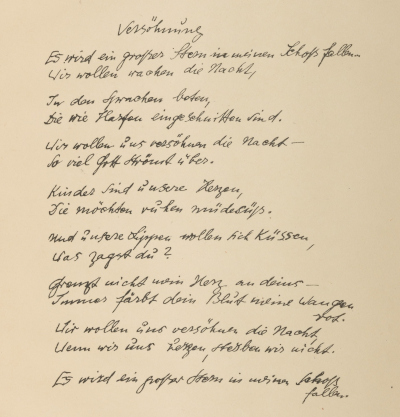 Versöhnung
Es wird ein großer Stern in meinen Schoß fallen –
Wir wollen wachen die Nacht,
In den Sprachen beten,
Die wie Harfen eingeschnitten sind.
Wir wollen uns versöhnen die Nacht –
So viel Gott strömt über.
Kinder sind unsere Herzen,
Die möchten ruhen müdesüß.
Und unsere Lippen wollen sich küssen,
Was zagst du?
Grenzt nicht mein Herz an deins –
Immer färbt dein Blut meine Wangen
rot.
Wir wollen uns versöhnen die Nacht,
Wenn wir uns herzen, sterben wir nicht.
Es wird ein großer Stern in meinen Schoß
fallen.